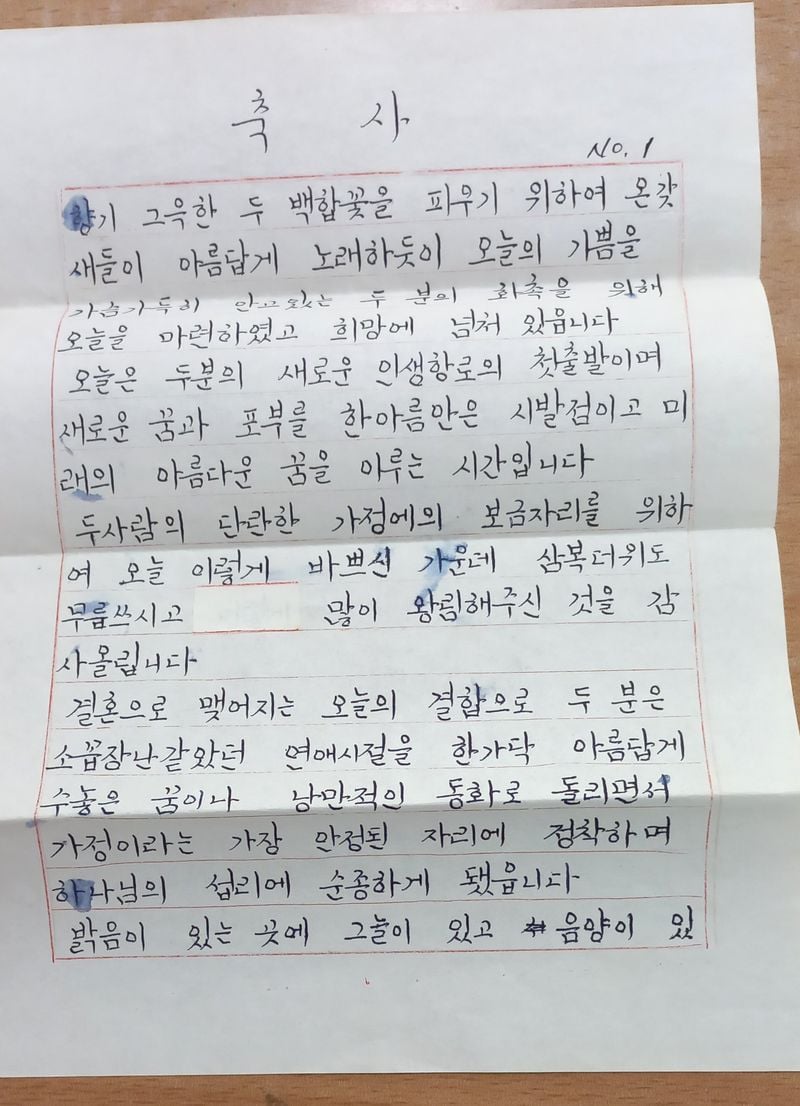 축 사
NO. 1
향기 그윽한 두 백합꽃을 피우기 위하여 온갖
새들이 아름답게 노래하듯이 오늘의 기쁨을
가슴가득히 안고있는 두 분의 화촉을 위해
오늘을 마련하였고 희망에 넘쳐 있읍니다
오늘은 두분의 새로운 인생항로의 첫출발이며
새로운 꿈과 포부를 한아름안은 시발점이고 미
래의 아름다운 꿈을 이루는 시간입니다
두사람의 단란한 가정에의 보금자리를 위하
여 오늘 이렇게 바쁘신 가운데 삼복더위도
무릅쓰시고 많이 왕림해주신 것을 감
사올립니다
결혼으로 맺어지는 오늘의 결합으로 두 분은
소꼽장난같았던 연애시절을 한가닥 아름답게
수놓은 꿈이나 낭만적인 동화로 돌리면서
가정이라는 가장 안정된 자리에 정착하며
하나님의 섭리에 순종하게 됐읍니다
밝음이 있는 곳에 그늘이 있고 음양이 있